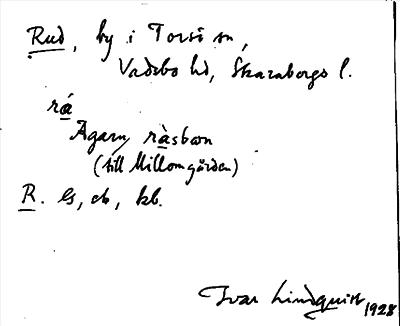 Rud, by i Torsö sn,
Vadsbo hd, Skaraborgs l.
rá
Ägarn, ràsbon
(till Millomgården)
R. Gs, eb, kb.
Ivar Lindquist 1928